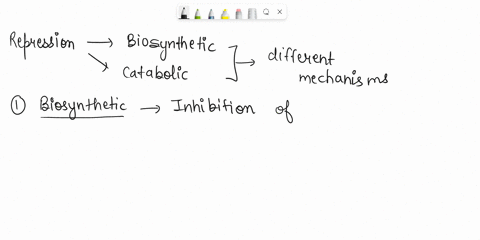 Repression → Biosynthetic
Catabolic
→ different mechanisms
① Biosynthetic → Inhibition of